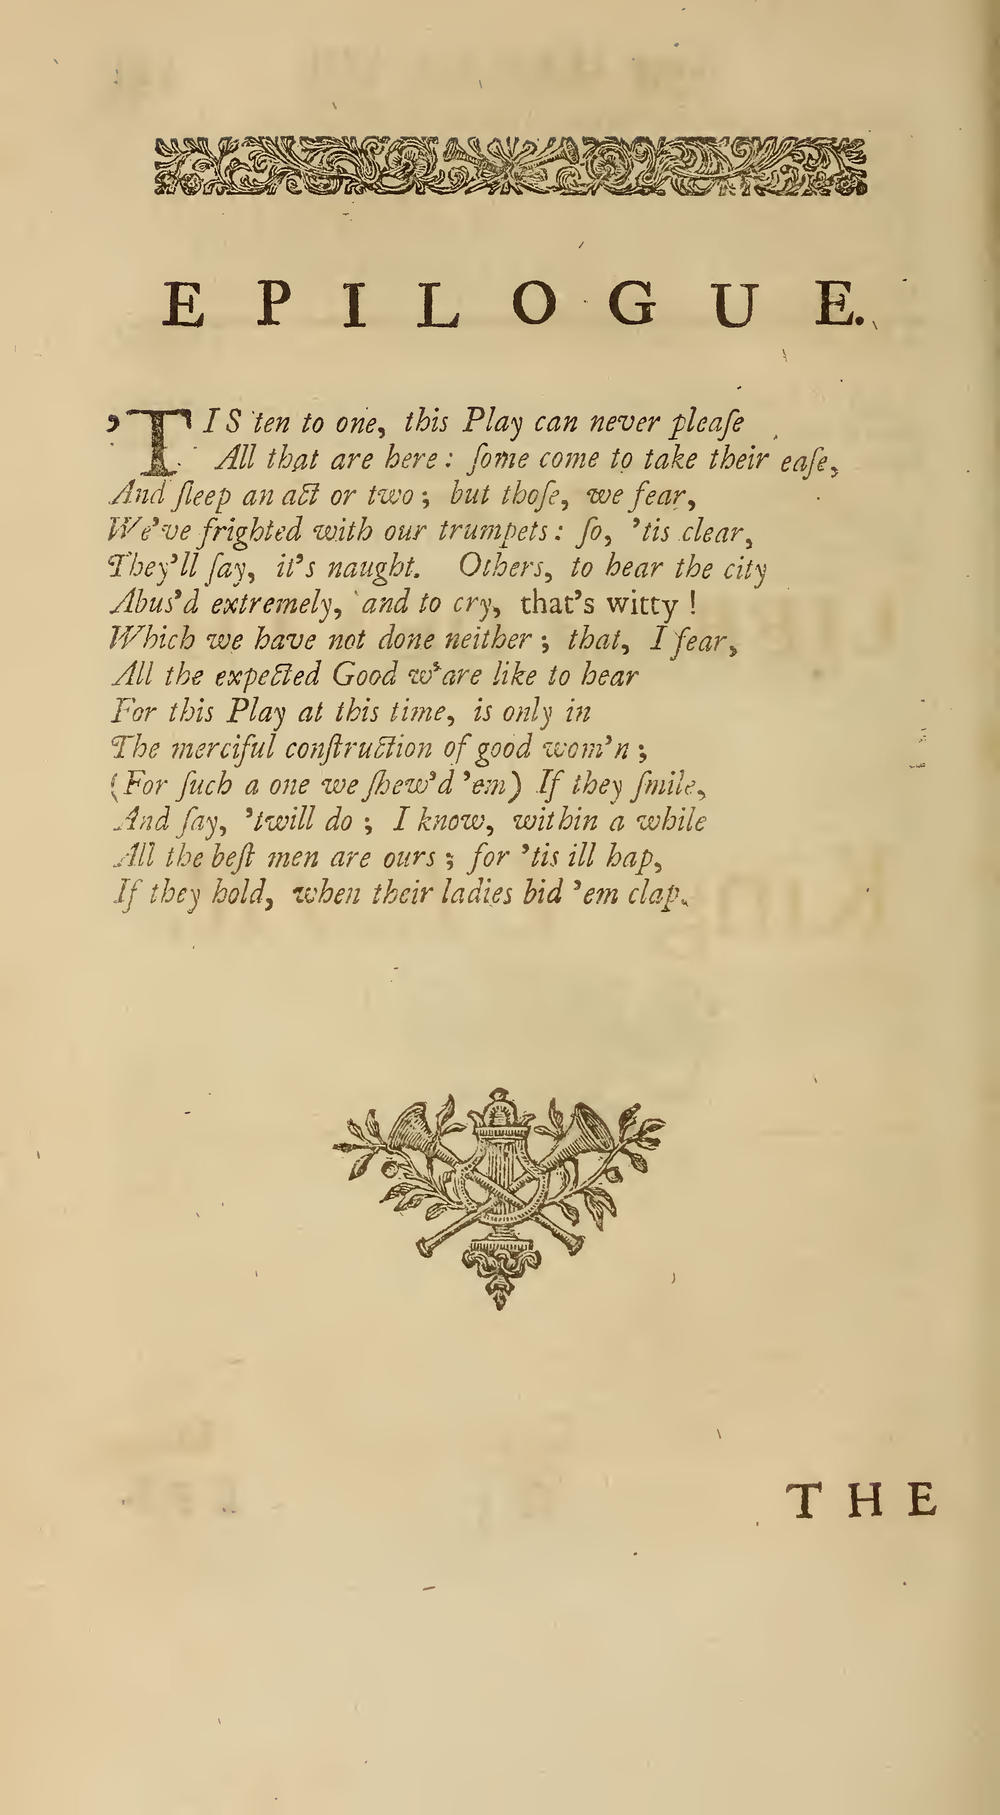 EPILOGUE.
'TIS ten to one, this Play can never pleaſe
All that are here: ſome come to take their eaſe,
And ſleep an act or two; but thoſe, we fear,
We've frighted with our trumpets: ſo, 'tis clear,
They'll ſay, it's naught. Others, to hear the city
Abus'd extremely, and to cry, that's witty!
Which we have not done neither; that, I fear,
All the expected Good w'are like to hear
For this Play at this time, is only in
The merciful conſtruction of good wom'n;
(For ſuch a one we ſhew'd 'em) If they ſmile,
And ſay, 'twill do; I know, within a while
All the beſt men are ours; for 'tis ill hap,
If they hold, when their ladies bid 'em clap.
THE